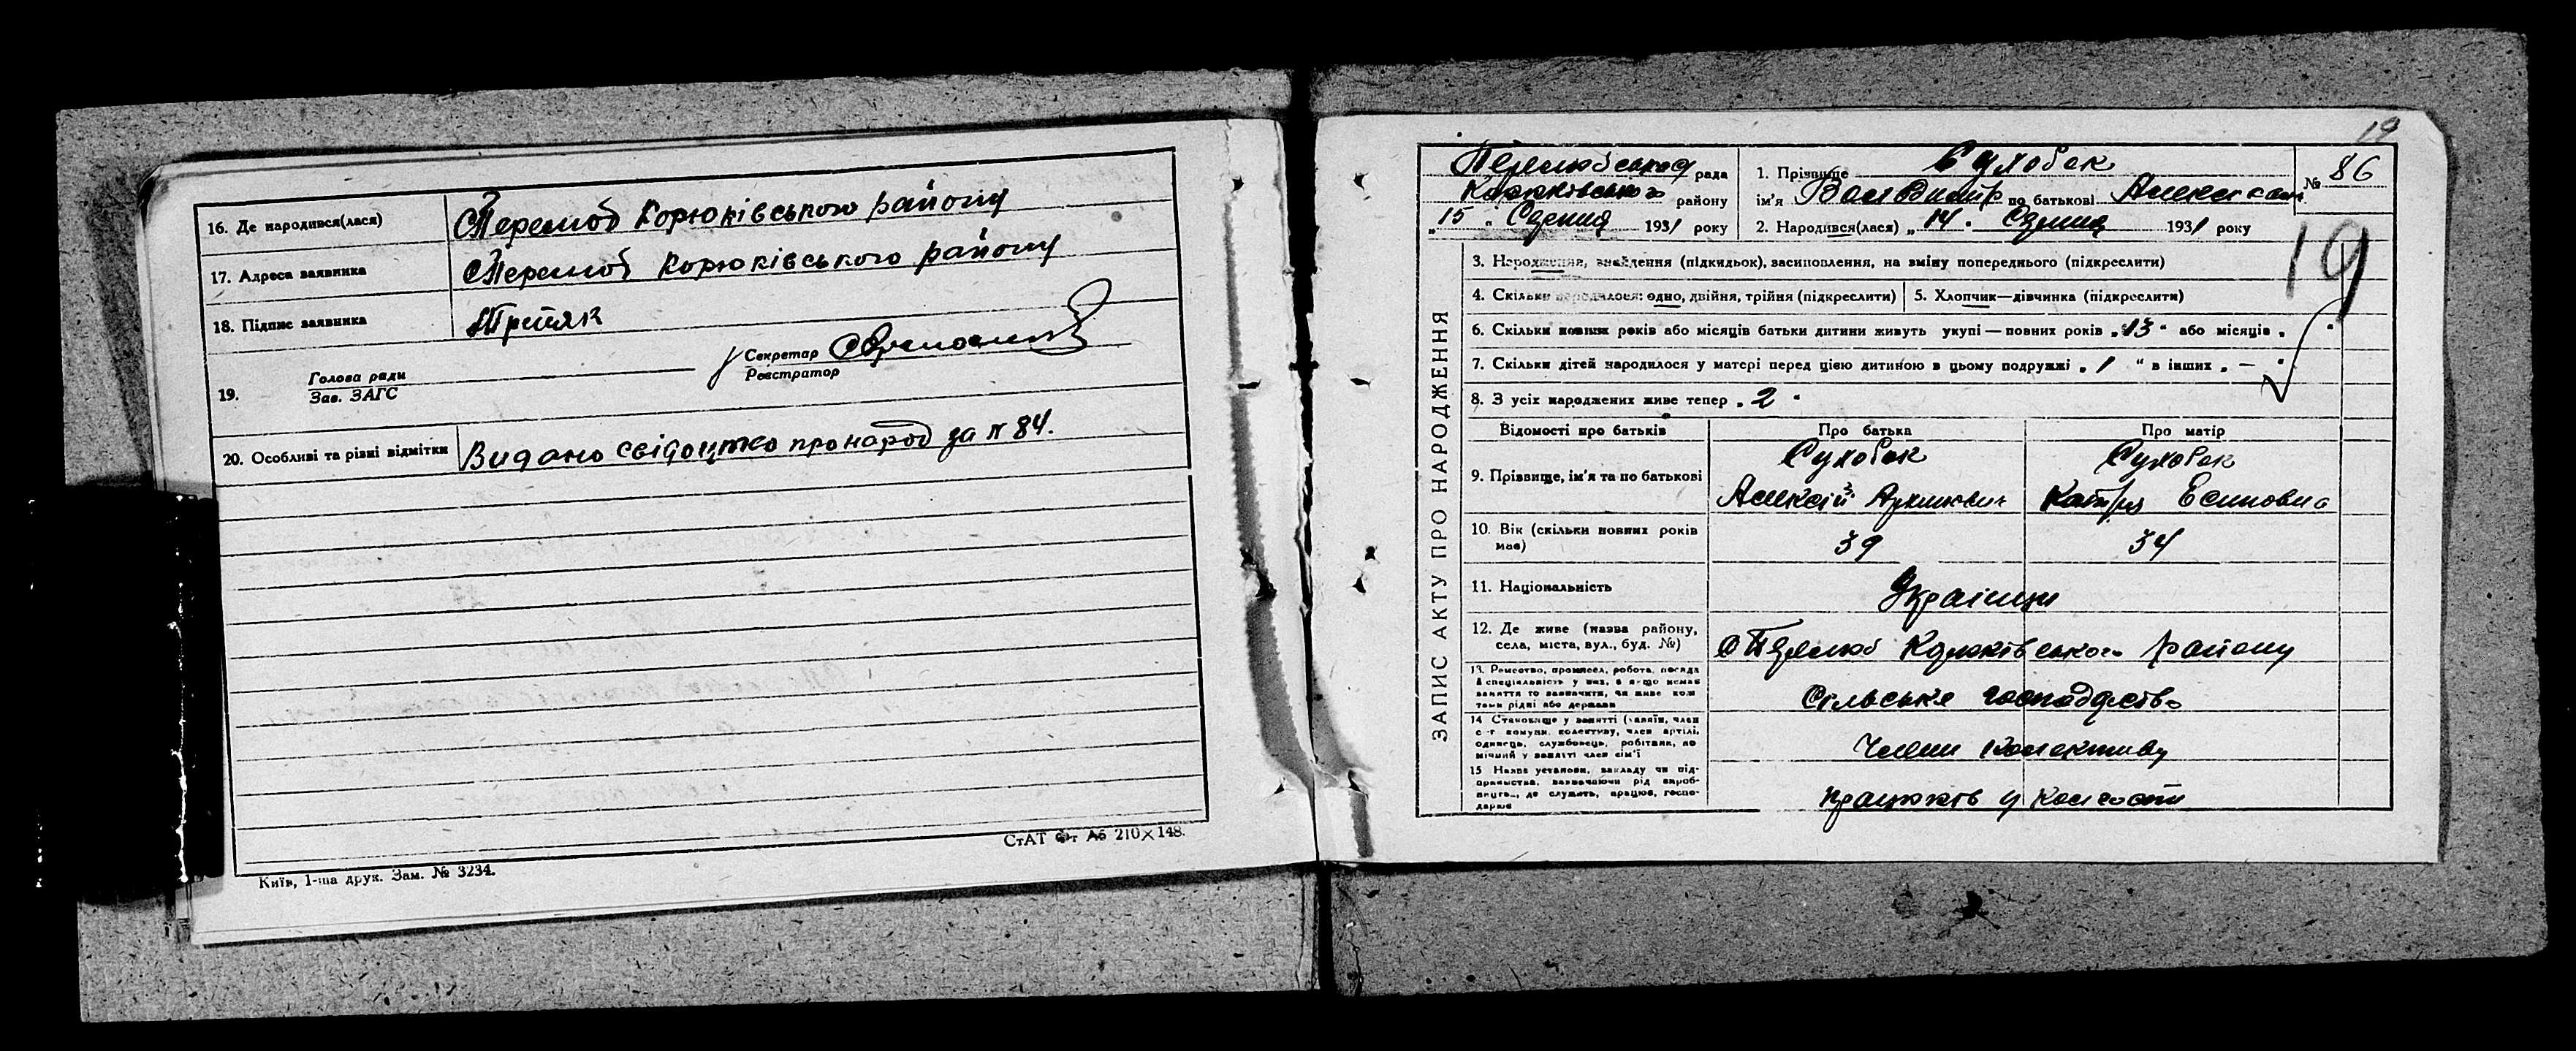 16. Де народився(лася) С Перелюб Корюківського району
17. Адреса заявника С Перелюб Корюківського району
18. Підпис заявника Третяк
19. Голова ради
Зав. ЗАГС
Секретар
Реєстратор
20. Особливі та різні відмітки Видано свідоцтво про народ за № 84.
СтАТ Фт А6 210×148.
Київ, 1-ша друк. Зам. № 3234.
19
Перелюбська рада
Корюківського району
„15" Серпня 1931 року
1. Прізвище Сухобок
ім'я Володимир по батькові
№ 86
2. Народився(лася) „14" Серпня 1931 року
19
ЗАПИС АКТУ ПРО НАРОДЖЕННЯ
3. Народження, знайдення (підкидьок), засиновлення, на зміну попереднього (підкреслити)
4. Скільки народилося: одно, двійня, трійня (підкреслити)
5. Хлопчик—дівчинка (підкреслити)
6. Скільки повних років або місяців батьки дитини живуть укупі—повних років „13" або місяців „ "
7. Скільки дітей народилося у матері перед цією дитиною в цьому подружжі „1" в інших „—"
8. З усіх народжених живе тепер „2"
Відомості про батьків Про батька Про матір
9. Прізвище, ім'я та по батькові
Сухобок Сухобок
Алексій Катря Есиповна
10. Вік (скільки повних років має)
39 34
11. Національність Українци
12. Де живе (назва району, села, міста, вул., буд. №)
С Перелюб Корюківського району
13. Ремество, промисел, робота, посада й спеціальність у них, а якщо немає заняття то зазначити, чи живе коштами рідні або держави
Сільське господарство
14 Становище у занятті (хазяїн, член с-г комуни, колективу, член артілі, одинець, службовець, робітник, помічний у занятті член сім'ї
Члени колективу
15 Назва установи, закладу чи підприємства, зазначаючи рід виробництв., де служить, працює, господарює
працюють у колгоспі